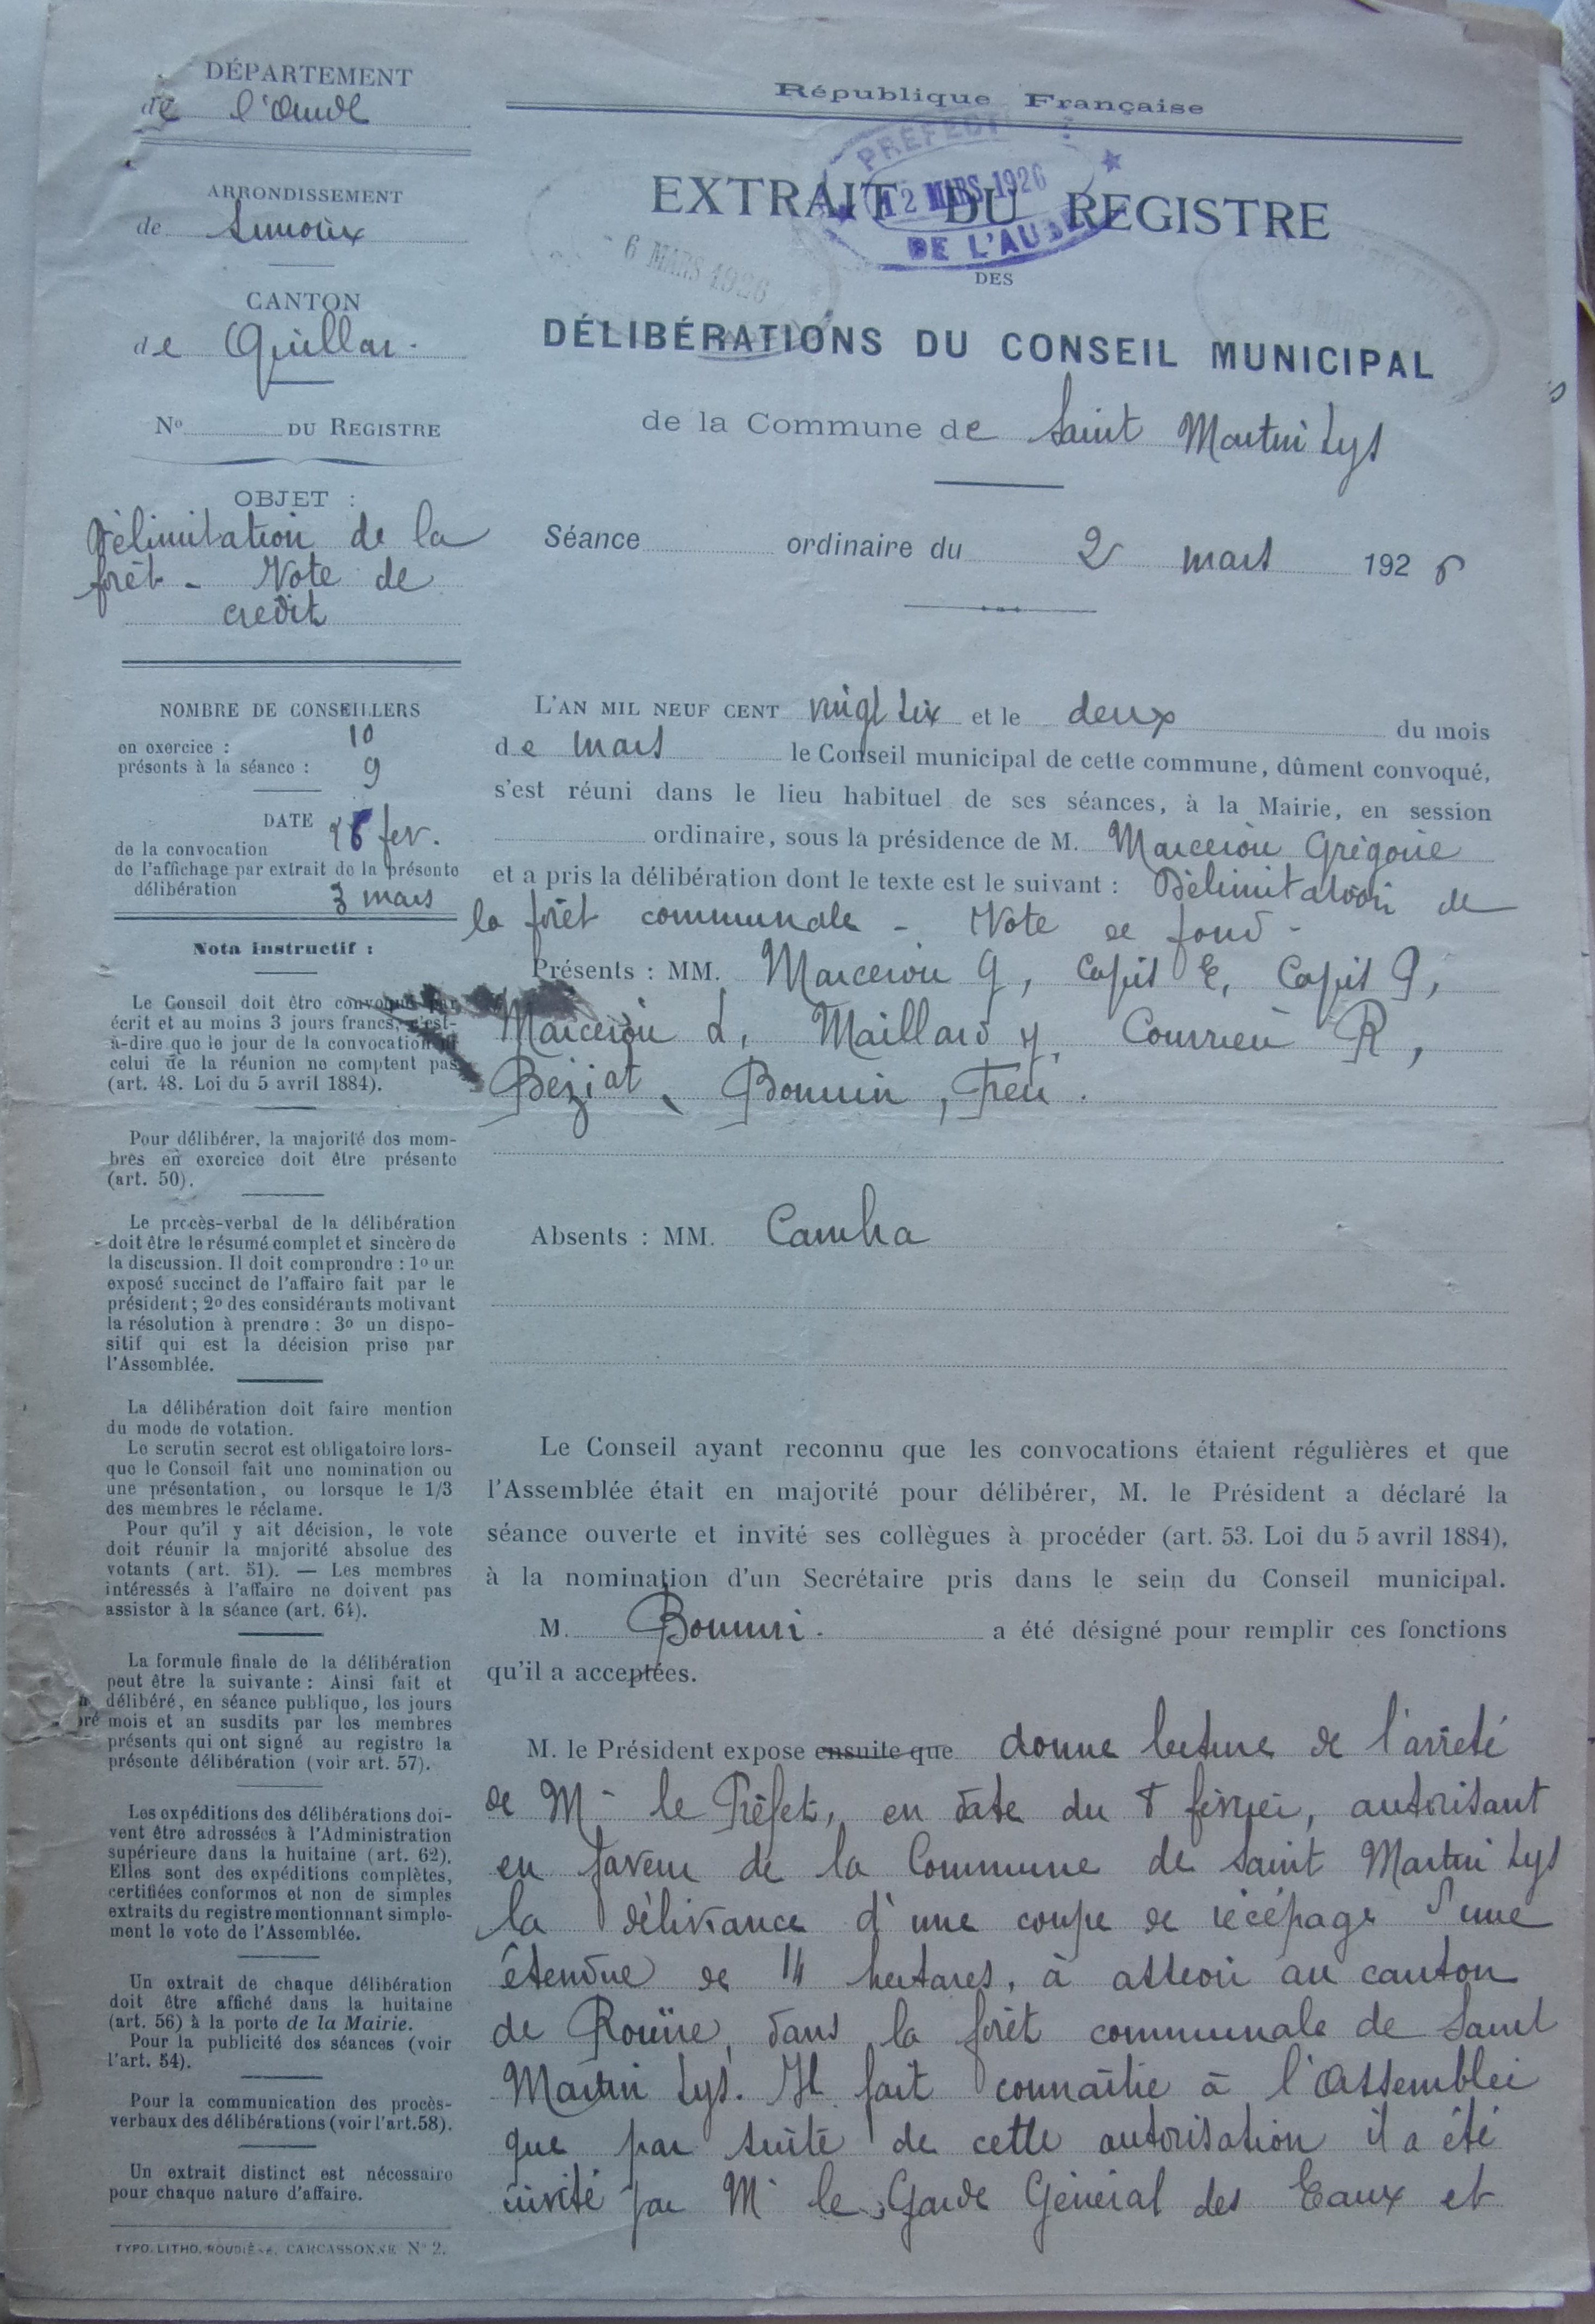 DÉPARTEMENT
de l'Aude
ARRONDISSEMENT
de Limoux
CANTON
de Quillan.
No DU REGISTRE
OBJET :
Délimitation de la
forêt - Vote de
crédit
NOMBRE DE CONSEILLERS
en exercice : 10
présents à la séance : 9
DATE
de la convocation fev.
de l'affichage par extrait de la présente
délibération 3 mars
Nota instructif :
Le Conseil doit être convoqué par
écrit et au moins 3 jours francs, c'est-
à-dire que le jour de la convocation et
celui de la réunion ne comptent pas
(art. 48. Loi du 5 avril 1884).
Pour délibérer, la majorité des mem-
bres en exercice doit être présente
(art. 50).
Le procès-verbal de la délibération
doit être le résumé complet et sincère de
la discussion. Il doit comprendre : 1o un
exposé succinct de l'affaire fait par le
président ; 2o des considérants motivant
la résolution à prendre ; 3o un dispo-
sitif qui est la décision prise par
l'Assemblée.
La délibération doit faire mention
du mode de votation.
Le scrutin secret est obligatoire lors-
que le Conseil fait une nomination ou
une présentation, ou lorsque le 1/3
des membres le réclame.
Pour qu'il y ait décision, le vote
doit réunir la majorité absolue des
votants (art. 51). — Les membres
intéressés à l'affaire ne doivent pas
assister à la séance (art. 64).
La formule finale de la délibération
peut être la suivante : Ainsi fait et
délibéré, en séance publique, les jours
mois et an susdits par les membres
présents qui ont signé au registre la
présente délibération (voir art. 57).
Les expéditions des délibérations doi-
vent être adressées à l'Administration
supérieure dans la huitaine (art. 62).
Elles sont des expéditions complètes,
certifiées conformes et non de simples
extraits du registre mentionnant simple-
ment le vote de l'Assemblée.
Un extrait de chaque délibération
doit être affiché dans la huitaine
(art. 56) à la porte de la Mairie.
Pour la publicité des séances (voir
l'art. 54).
Pour la communication des procès-
verbaux des délibérations (voir l'art.58).
Un extrait distinct est nécessaire
pour chaque nature d'affaire.
TYPO. LITHO. ROUDIÈRE, CARCASSONNE No 2.
République Française
PRÉFECT
12 MARS 1926
DE L'AUDE
6 MARS 1926
EXTRAIT DU REGISTRE
DES
DÉLIBÉRATIONS DU CONSEIL MUNICIPAL
de la Commune de Saint Martin Lys
Séance ordinaire du 2 mars 1926
L'AN MIL NEUF CENT vingt six et le deux du mois
de mars le Conseil municipal de cette commune, dûment convoqué,
s'est réuni dans le lieu habituel de ses séances, à la Mairie, en session
ordinaire, sous la présidence de M. Marcerou Grégoire
et a pris la délibération dont le texte est le suivant : Délimitation de
la forêt communale - Vote de fond -
Présents : MM. Marcerou G, Capit E, Capit G,
Marcerou L, Maillard Y, Courrieu R,
Beziat, Bonnin, Treu.
Absents : MM.
Le Conseil ayant reconnu que les convocations étaient régulières et que
l'Assemblée était en majorité pour délibérer, M. le Président a déclaré la
séance ouverte et invité ses collègues à procéder (art. 53. Loi du 5 avril 1884),
à la nomination d'un Secrétaire pris dans le sein du Conseil municipal.
M. Bonnin. a été désigné pour remplir ces fonctions
qu'il a acceptées.
M. le Président expose ensuite que donne lecture de l'arrêté
de Mr le Préfet, en date du 8 février, autorisant
en faveur de la Commune de Saint Martin Lys
la délivrance d'une coupe de récépage d'une
étendue de 14 hectares, à asseoir au canton
de Rouïre, dans la forêt communale de Saint
Martin Lys. Il fait connaître à l'Assemblée
que par suite de cette autorisation il a été
invité par Mr le Garde Général des Eaux et